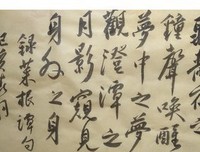 聽靜夜之
鐘聲喚醒
夢中之夢
觀澄潭之
月影窺見
身外之身
錄菜根譚句